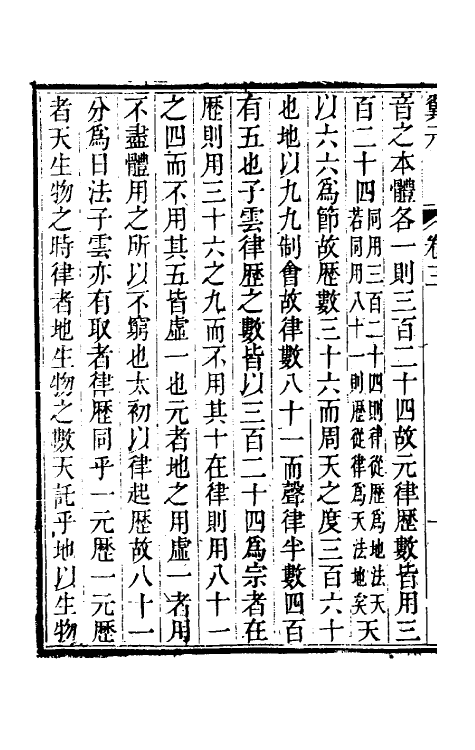 翼元 卷三
音之本體各一則三百二十四故元律歷數皆用三
百二十四同用三百二十四則律從歷為地法天若同用八十一則歷從律為天法地矣天
以六六為節故歷數三十六而周天之度三百六十
也地以九九制會故律數八十一而聲律半數四百
有五也子雲律歷之數皆以三百二十四為宗者在
歷則用三十六之九而不用其十在律則用八十一
之四而不用其五皆虛一也元者地之用虛一者用
不盡體用之所以不窮也太初以律起歷故八十一
分為日法子雲亦有取者律歷同乎一元歷一元歷
者天生物之時律者地生物之數天託乎地以生物